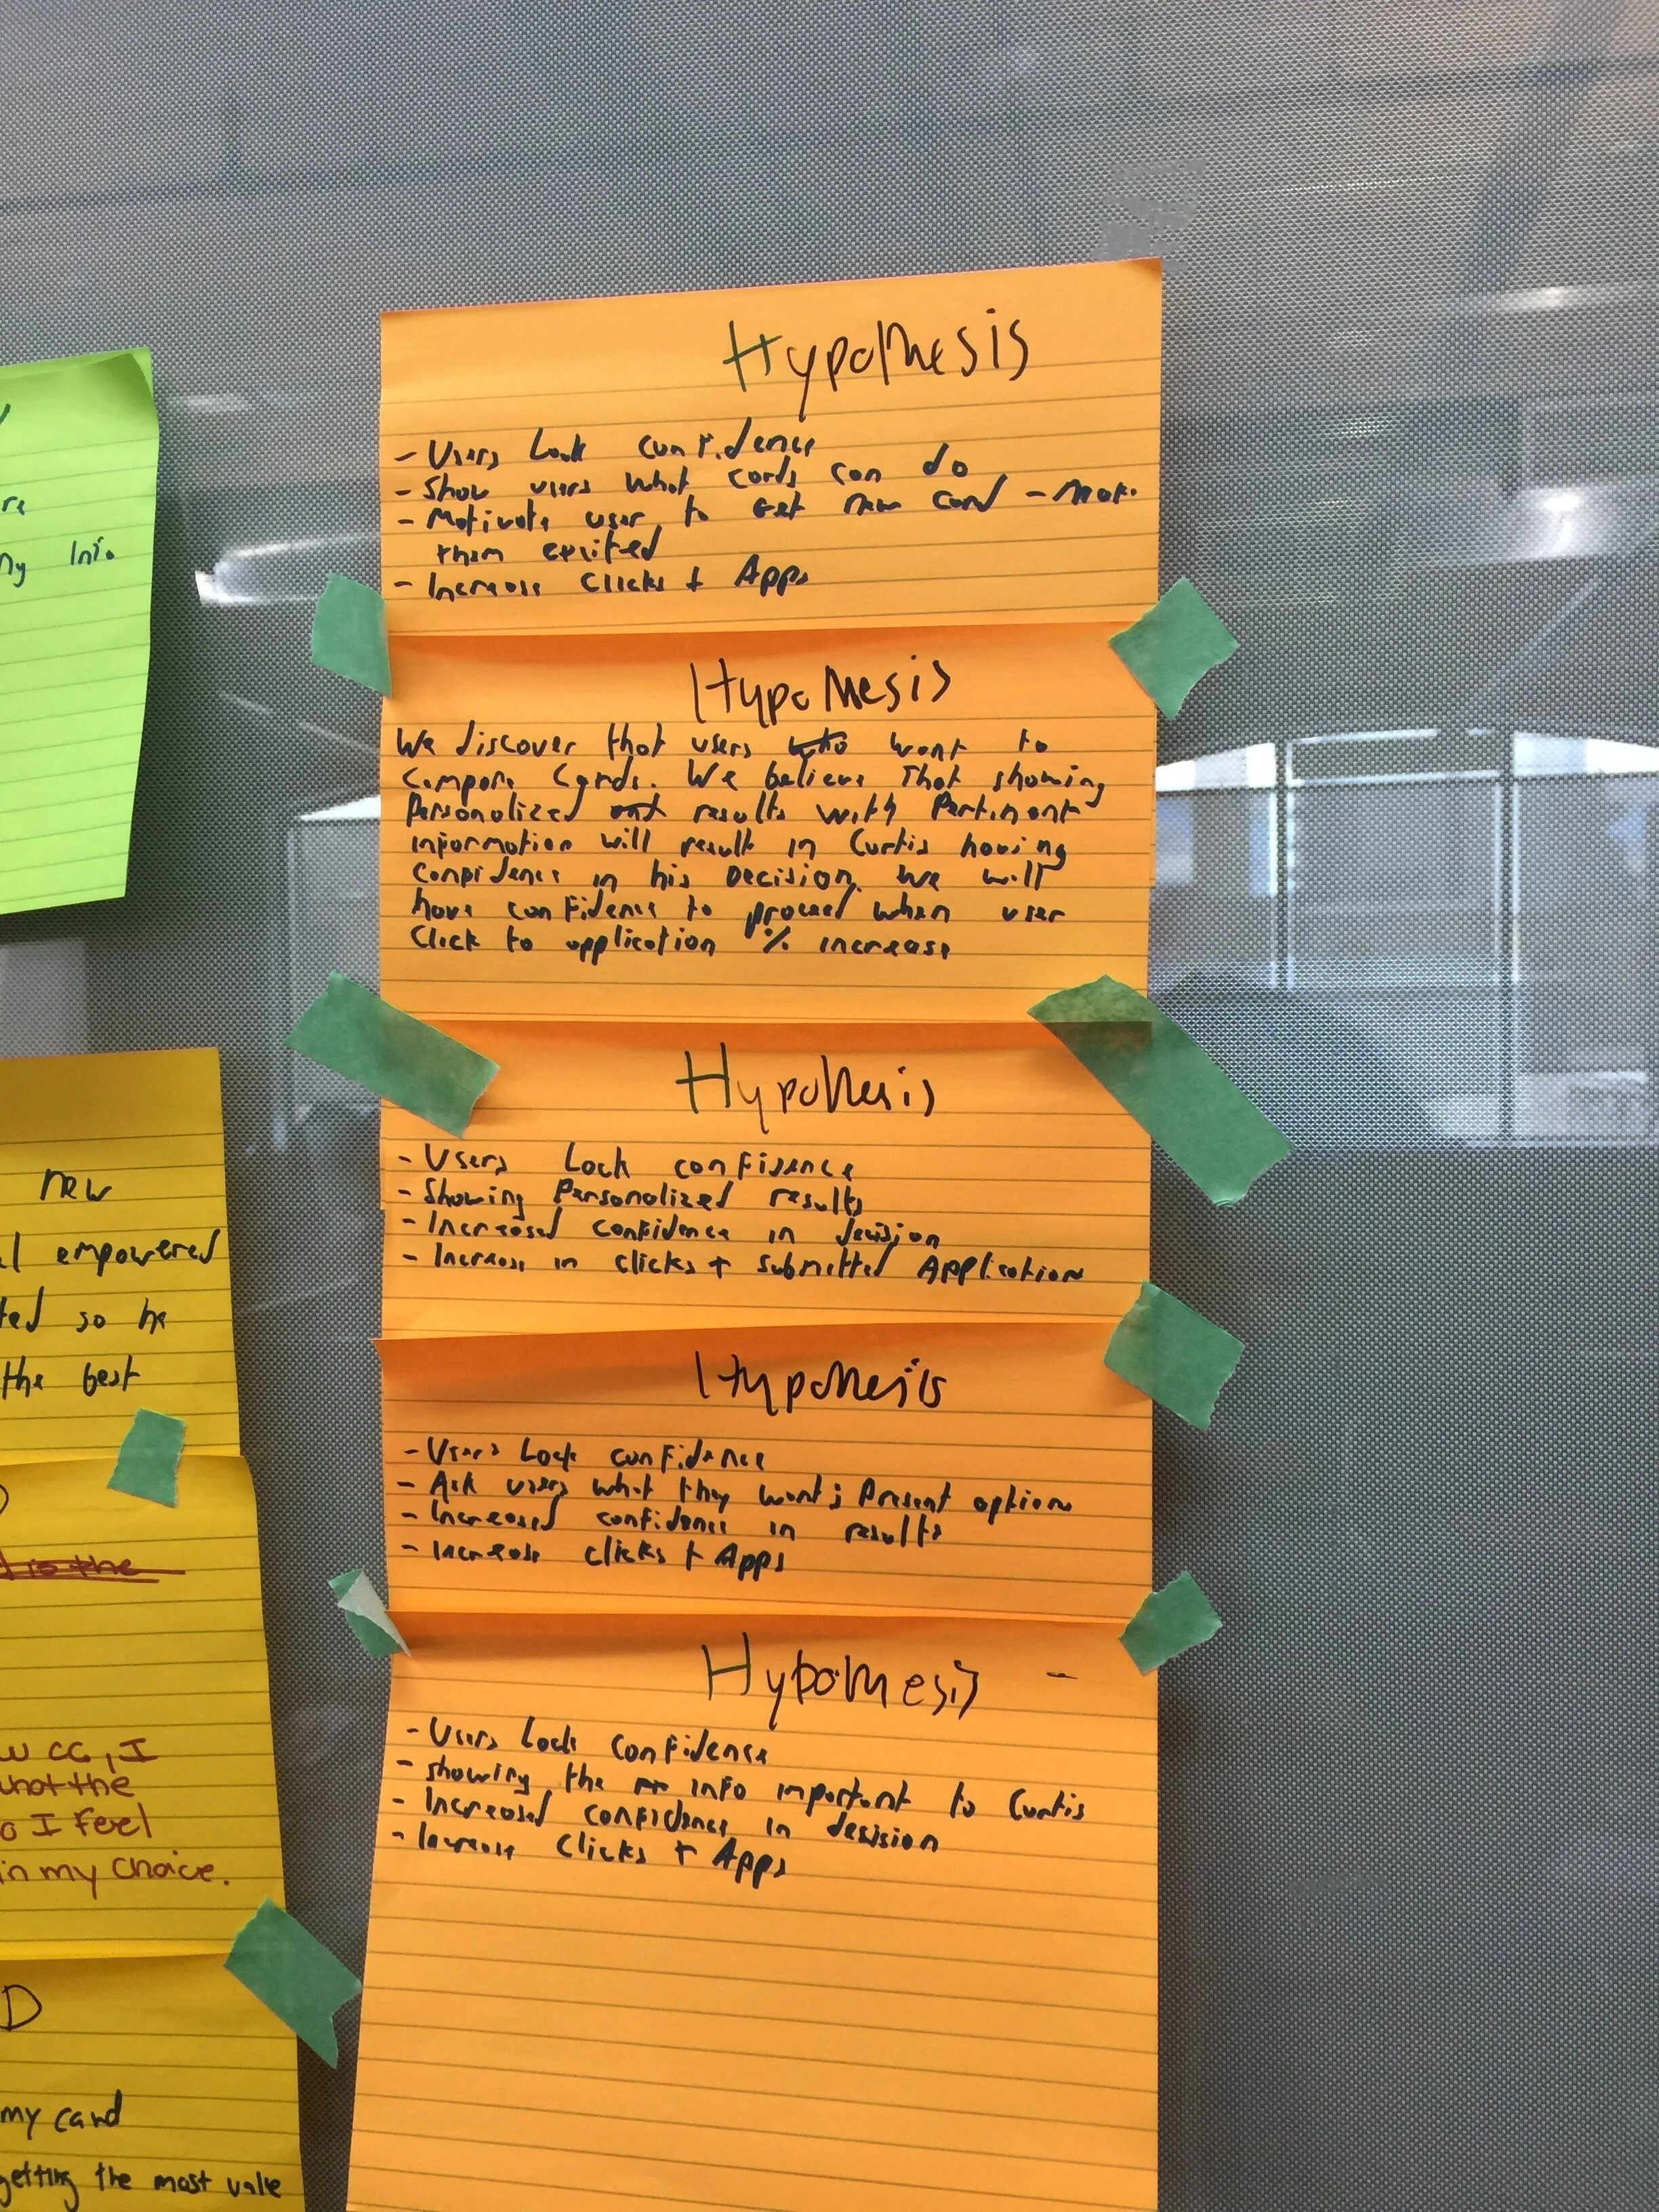 re
ny Info
new
empowered
ted so he
the best
to the
w CC, I
what the
so I feel
in my choice.
D
my card
getting the most value
Hypothesis
- Users Lack confidence
- Show users what cards can do
- Motivate user to Get new card - Make
them excited
- Increase Clicks + Apps
Hypothesis
We discover that users who want to
compare Cards. We believe That showing
Personalized results with Pertinent
information will result in Curtis having
Confidence in his Decision. We will
have confidence to proceed when user
Click to application % increase
Hypothesis
- Users Lack confidence
- Showing Personalized results
- Increased confidence in decision
- Increase in clicks + submitted Application
Hypothesis
- Users Lack confidence
- Ask users what they want; Present options
- Increased confidence in results
- Increase clicks + Apps
Hypothesis -
- Users Lack Confidence
- showing the info important to Curtis
- Increased confidence in decision
- Increase Clicks + Apps